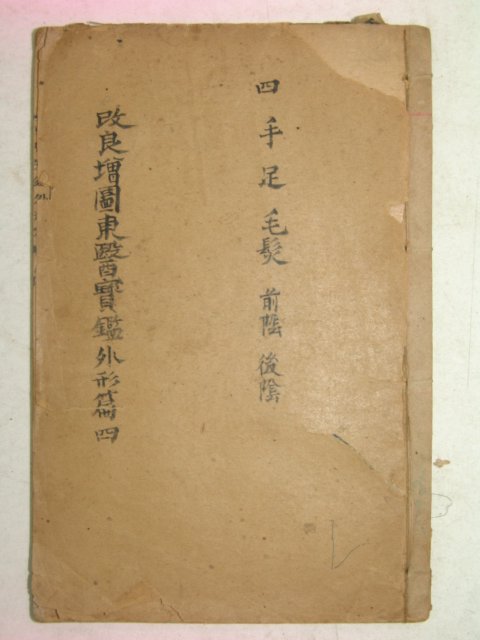 四 手 足 毛髮 前陰 後陰
改良增圖東醫寶鑑外形篇四